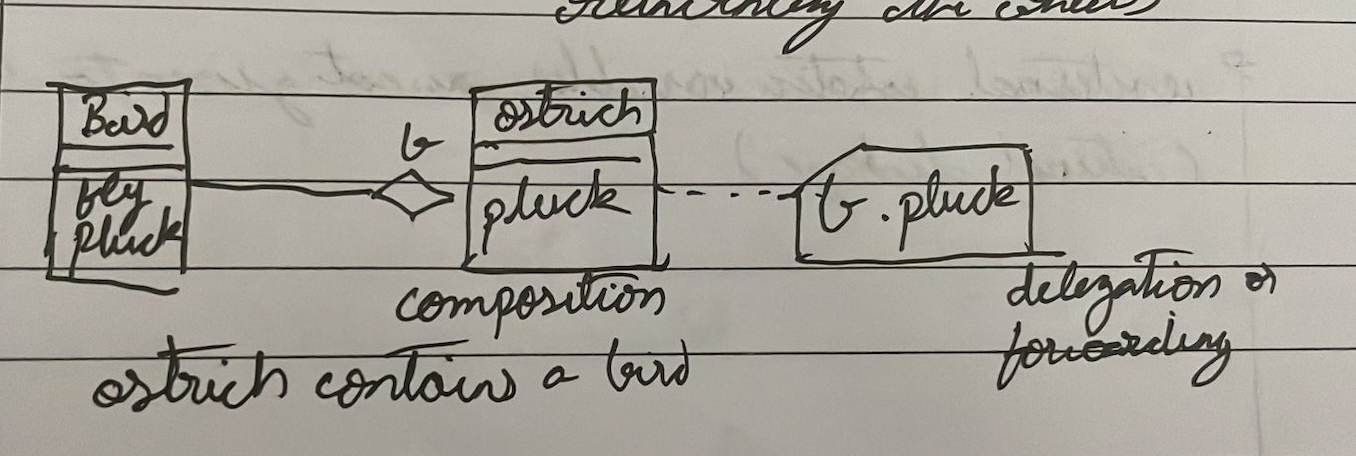 the
Bird
fly
pluck
b
ostrich
pluck
b.pluck
composition
delegation or
forwarding
ostrich contains a bird